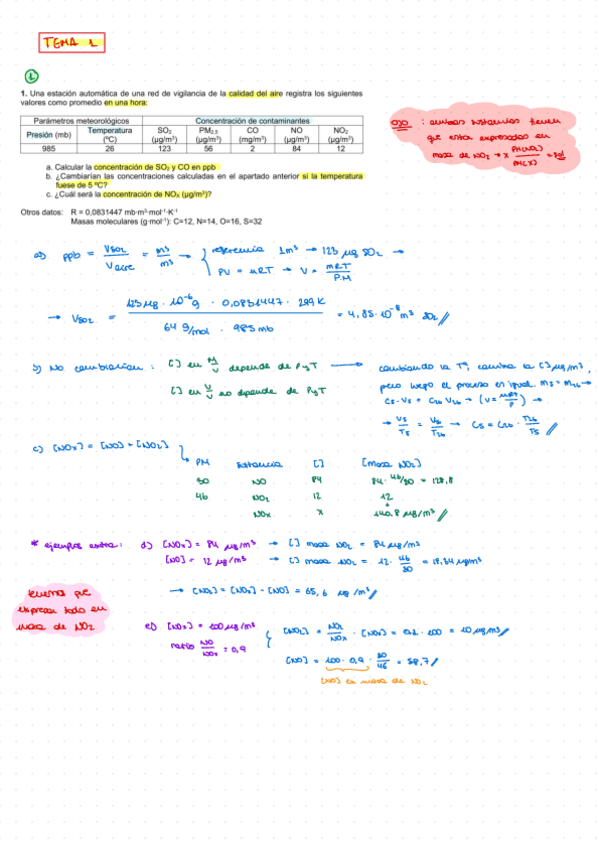 TEMA 1
1
1. Una estación automática de una red de vigilancia de la calidad del aire registra los siguientes
valores como promedio en una hora:
Parámetros meteorológicos Concentración de contaminantes
Presión (mb) Temperatura (ºC) SO2 (µg/m³) PM2,5 (µg/m³) CO (mg/m³) NO (µg/m³) NO2 (µg/m³)
985 26 123 56 2 84 12
ojo : ambas sustancias tienen
que estar expresadas en
masa de NO2 → x PM(NO2) / PM(x) = sol
a. Calcular la concentración de SO2 y CO en ppb
b. ¿Cambiarían las concentraciones calculadas en el apartado anterior si la temperatura
fuese de 5 ºC?
c. ¿Cuál será la concentración de NOx (µg/m³)?
Otros datos: R = 0,0831447 mb·m³·mol⁻¹·K⁻¹
Masas moleculares (g·mol⁻¹): C=12, N=14, O=16, S=32
a) ppb = VSO2 / Vaire = m³ / m³ → referencia 1m³ → 123 µg SO2 →
PV = nRT → V = mRT / P·M
→ VSO2 = 123 µg · 10⁻⁶ g · 0,0831447 · 299 K / 64 g/mol · 985 mb = 4,85·10⁻⁸ m³ SO2 //
b) No cambiarían : [ ] en M/V depende de P y T → cambiando la Tª, cambia la [ ] µg/m³,
[ ] en V/V no depende de P y T
pero luego el proceso es igual. m5 = m26 →
C5·V5 = C26 V26 → (V = nRT/P) →
→ V5/T5 = V26/T26 → C5 = C26 · T26/T5 //
c) [NOx] = [NO] + [NO2]
PM sustancia [ ] [masa NO2]
30 NO 84 84·46/30 = 128,8
46 NO2 12 12
NOx x 140,8 µg/m³ //
* ejemplos extra: d) [NOx] = 84 µg/m³ → [ ] masa NO2 = 84 µg/m³
[NO] = 12 µg/m³ → [ ] masa NO2 = 12 · 46/30 = 18,34 µg/m³
→ [NO2] = [NOx] - [NO] = 65,6 µg/m³ //
tenemos que
expresar todo en
masa de NO2
e) [NOx] = 100 µg/m³
ratio NO/NOx = 0,9
[NO2] = NO2/NOx · [NOx] = 0,1 · 100 = 10 µg/m³ //
[NO] = 100 · 0,9 · 30/46 = 58,7 //
[NO] en masa de NO2